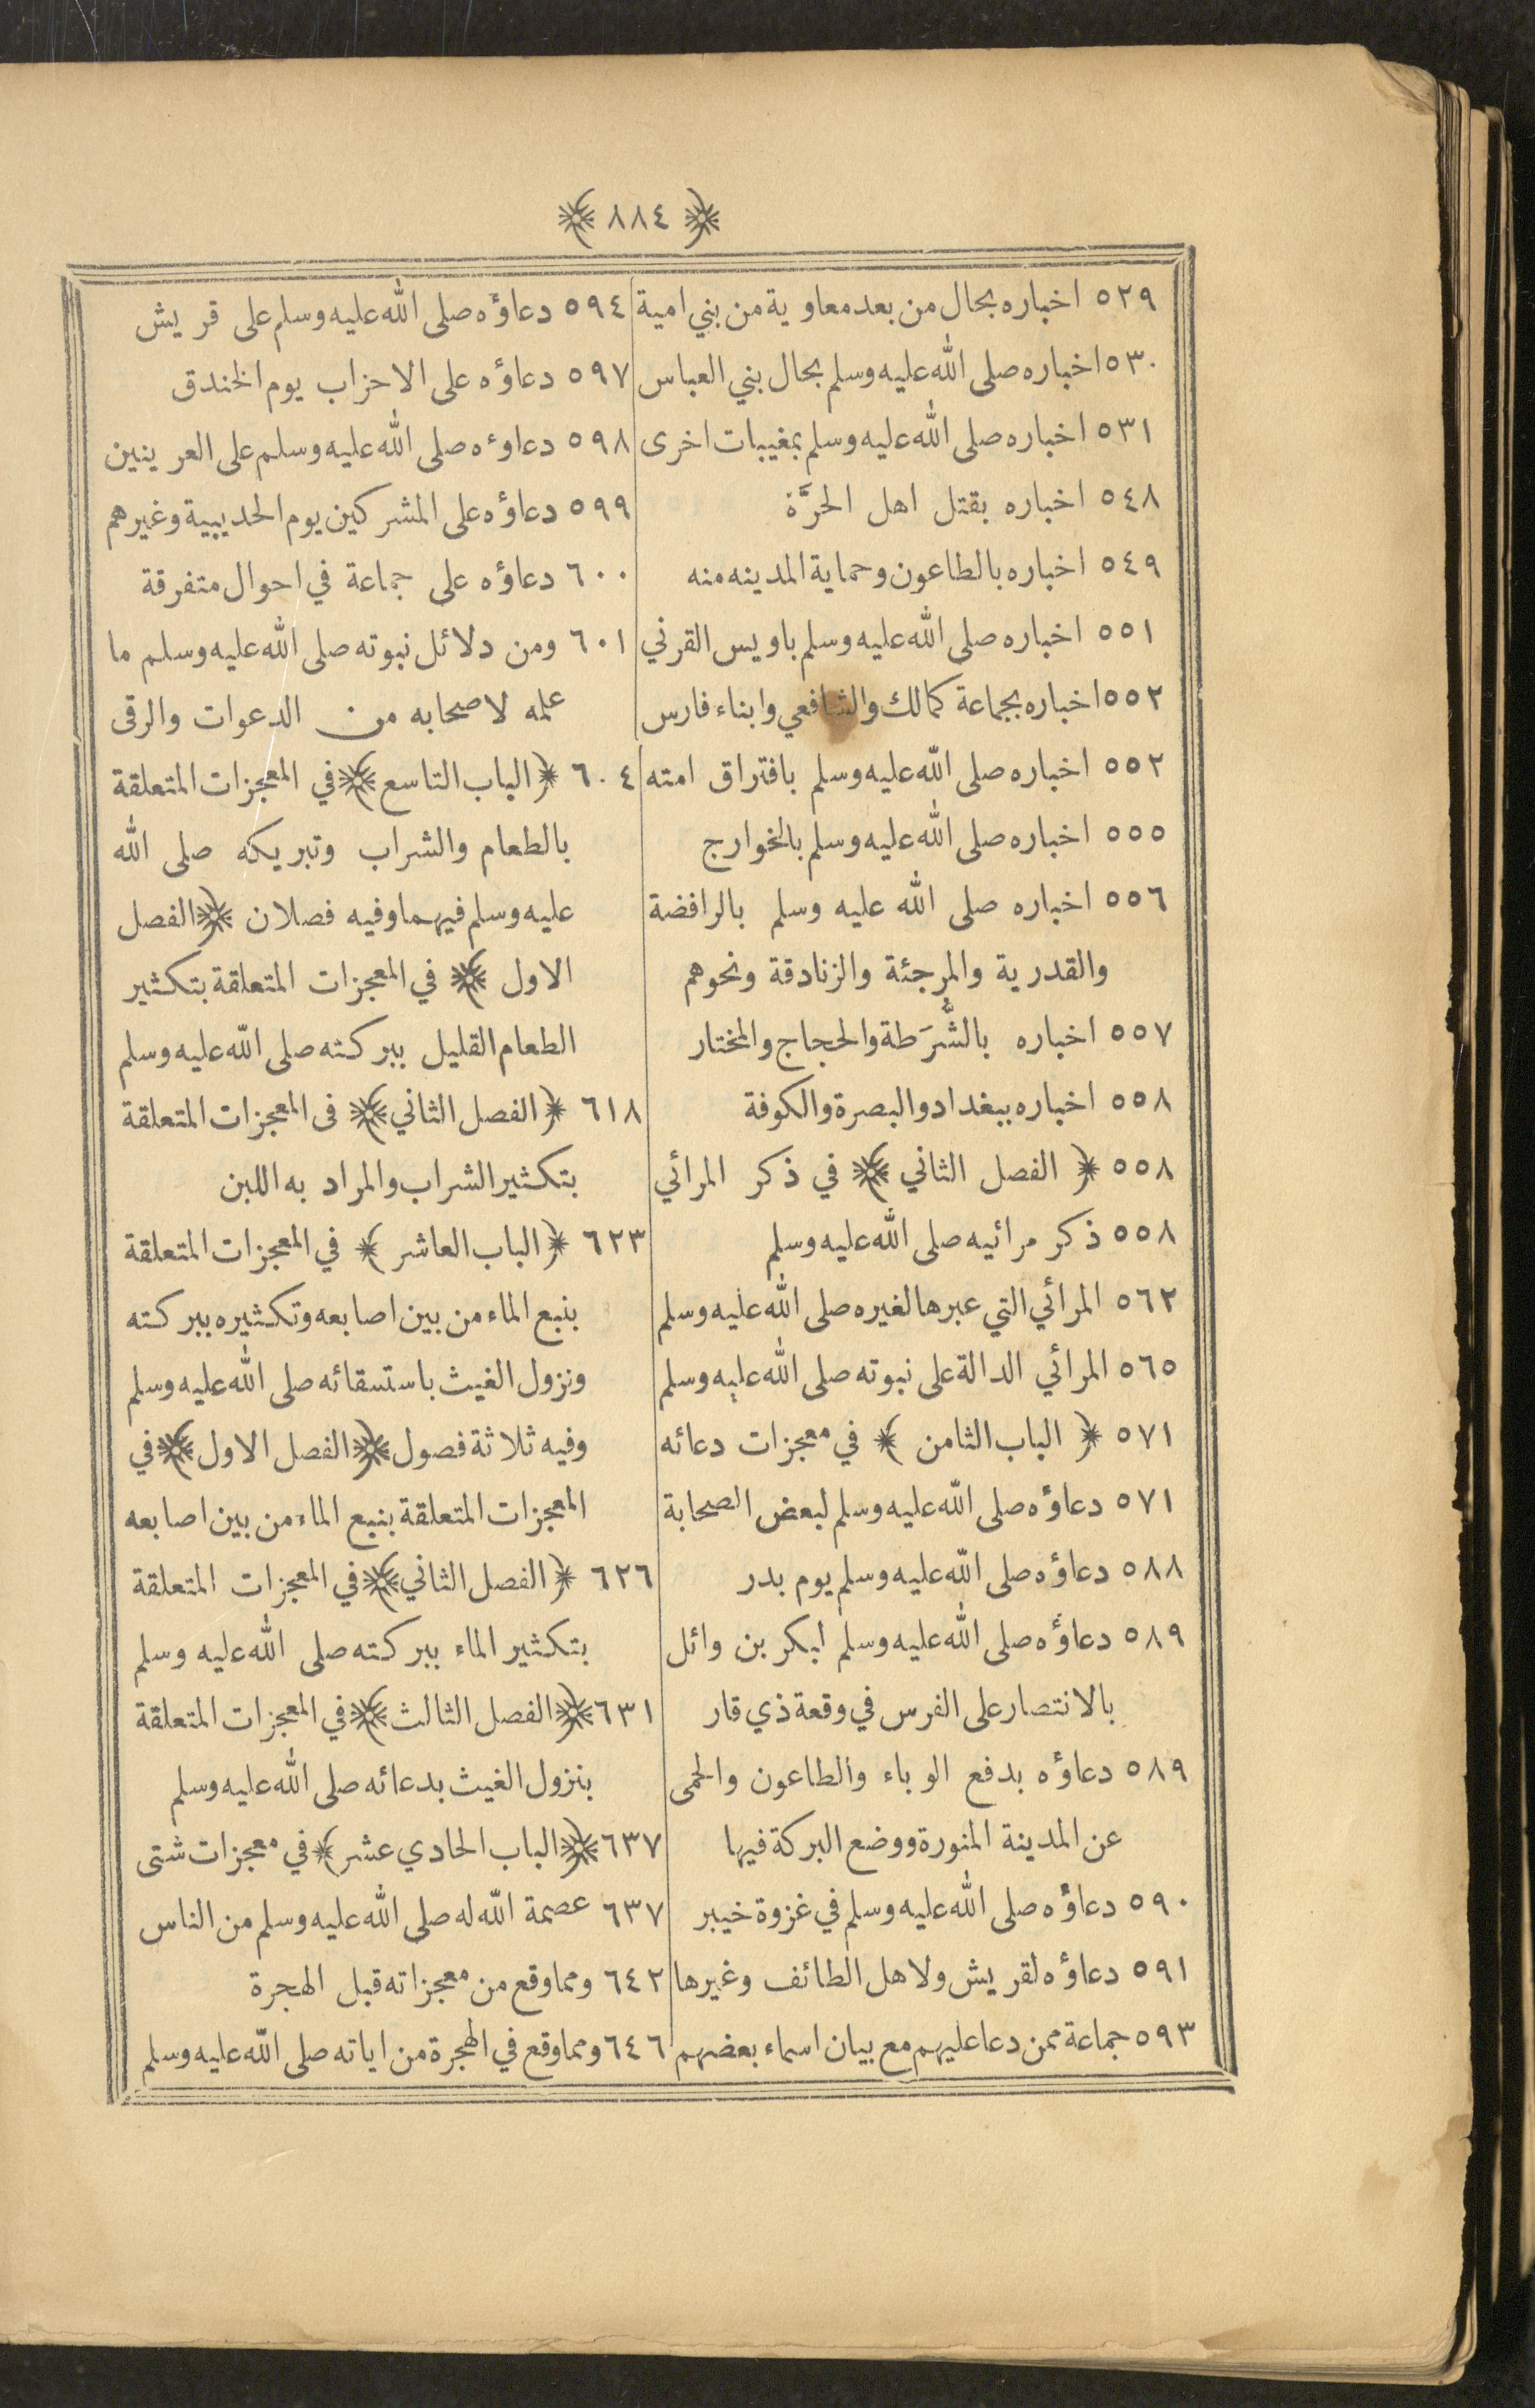 ﴿ ٨٨٤ ﴾
٥٢٩ اخباره بحال من بعد معاوية من بني امية
٥٣٠ اخباره صلى الله عليه وسلم بحال بني العباس
٥٣١ اخباره صلى الله عليه وسلم بمغيبات اخرى
٥٤٨ اخباره بقتل اهل الحرَّة
٥٤٩ اخباره بالطاعون وحماية المدينه منه
٥٥١ اخباره صلى الله عليه وسلم باويس القرني
٥٥٢ اخباره بجماعة كمالك والشافعي وابناء فارس
٥٥٢ اخباره صلى الله عليه وسلم بافتراق امته
٥٥٥ اخباره صلى الله عليه وسلم بالخوارج
٥٥٦ اخباره صلى الله عليه وسلم بالرافضة
والقدرية والمرجئة والزنادقة ونحوهم
٥٥٧ اخباره بالشُّرَطة والحجاج والمختار
٥٥٨ اخباره ببغداد والبصرة والكوفة
٥٥٨ ﴿ الفصل الثاني ﴾ في ذكر المرائي
٥٥٨ ذكر مرائيه صلى الله عليه وسلم
٥٦٢ المرائي التي عبرها لغيره صلى الله عليه وسلم
٥٦٥ المرائي الدالة على نبوته صلى الله عليه وسلم
٥٧١ ﴿ الباب الثامن ﴾ في معجزات دعائه
٥٧١ دعاؤه صلى الله عليه وسلم لبعض الصحابة
٥٨٨ دعاؤه صلى الله عليه وسلم يوم بدر
٥٨٩ دعاؤه صلى الله عليه وسلم لبكر بن وائل
بالانتصار على الفرس في وقعة ذي قار
٥٨٩ دعاؤه بدفع الوباء والطاعون والحمى
عن المدينة المنورة ووضع البركة فيها
٥٩٠ دعاؤه صلى الله عليه وسلم في غزوة خيبر
٥٩١ دعاؤه لقريش ولاهل الطائف وغيرها
٥٩٣ جماعة ممن دعا عليهم مع بيان اسماء بعضهم
٥٩٤ دعاؤه صلى الله عليه وسلم على قريش
٥٩٧ دعاؤه على الاحزاب يوم الخندق
٥٩٨ دعاوءه صلى الله عليه وسلم على العرينين
٥٩٩ دعاؤه على المشركين يوم الحديبية وغيرهم
٦٠٠ دعاؤه على جماعة في احوال متفرقة
٦٠١ ومن دلائل نبوته صلى الله عليه وسلم ما
علمه لاصحابه من الدعوات والرقى
٦٠٤ ﴿ الباب التاسع ﴾ في المعجزات المتعلقة
بالطعام والشراب وتبريكه صلى الله
عليه وسلم فيهما وفيه فصلان ﴿ الفصل
الاول ﴾ في المعجزات المتعلقة بتكثير
الطعام القليل ببركته صلى الله عليه وسلم
٦١٨ ﴿ الفصل الثاني ﴾ فى المعجزات المتعلقة
بتكثير الشراب والمراد به اللبن
٦٢٣ ﴿ الباب العاشر ﴾ في المعجزات المتعلقة
بنبع الماء من بين اصابعه وتكثيره ببركته
ونزول الغيث باستسقائه صلى الله عليه وسلم
وفيه ثلاثة فصول ﴿ الفصل الاول ﴾ في
المعجزات المتعلقة بنبع الماء من بين اصابعه
٦٢٦ ﴿ الفصل الثاني ﴾ في المعجزات المتعلقة
بتكثير الماء ببركته صلى الله عليه وسلم
٦٣١ ﴿ الفصل الثالث ﴾ في المعجزات المتعلقة
بنزول الغيث بدعائه صلى الله عليه وسلم
٦٣٧ ﴿ الباب الحادي عشر ﴾ في معجزات شتى
٦٣٧ عصمة الله له صلى الله عليه وسلم من الناس
٦٤٢ ومما وقع من معجزاته قبل الهجرة
٦٤٦ ومما وقع في الهجرة من اياته صلى الله عليه وسلم